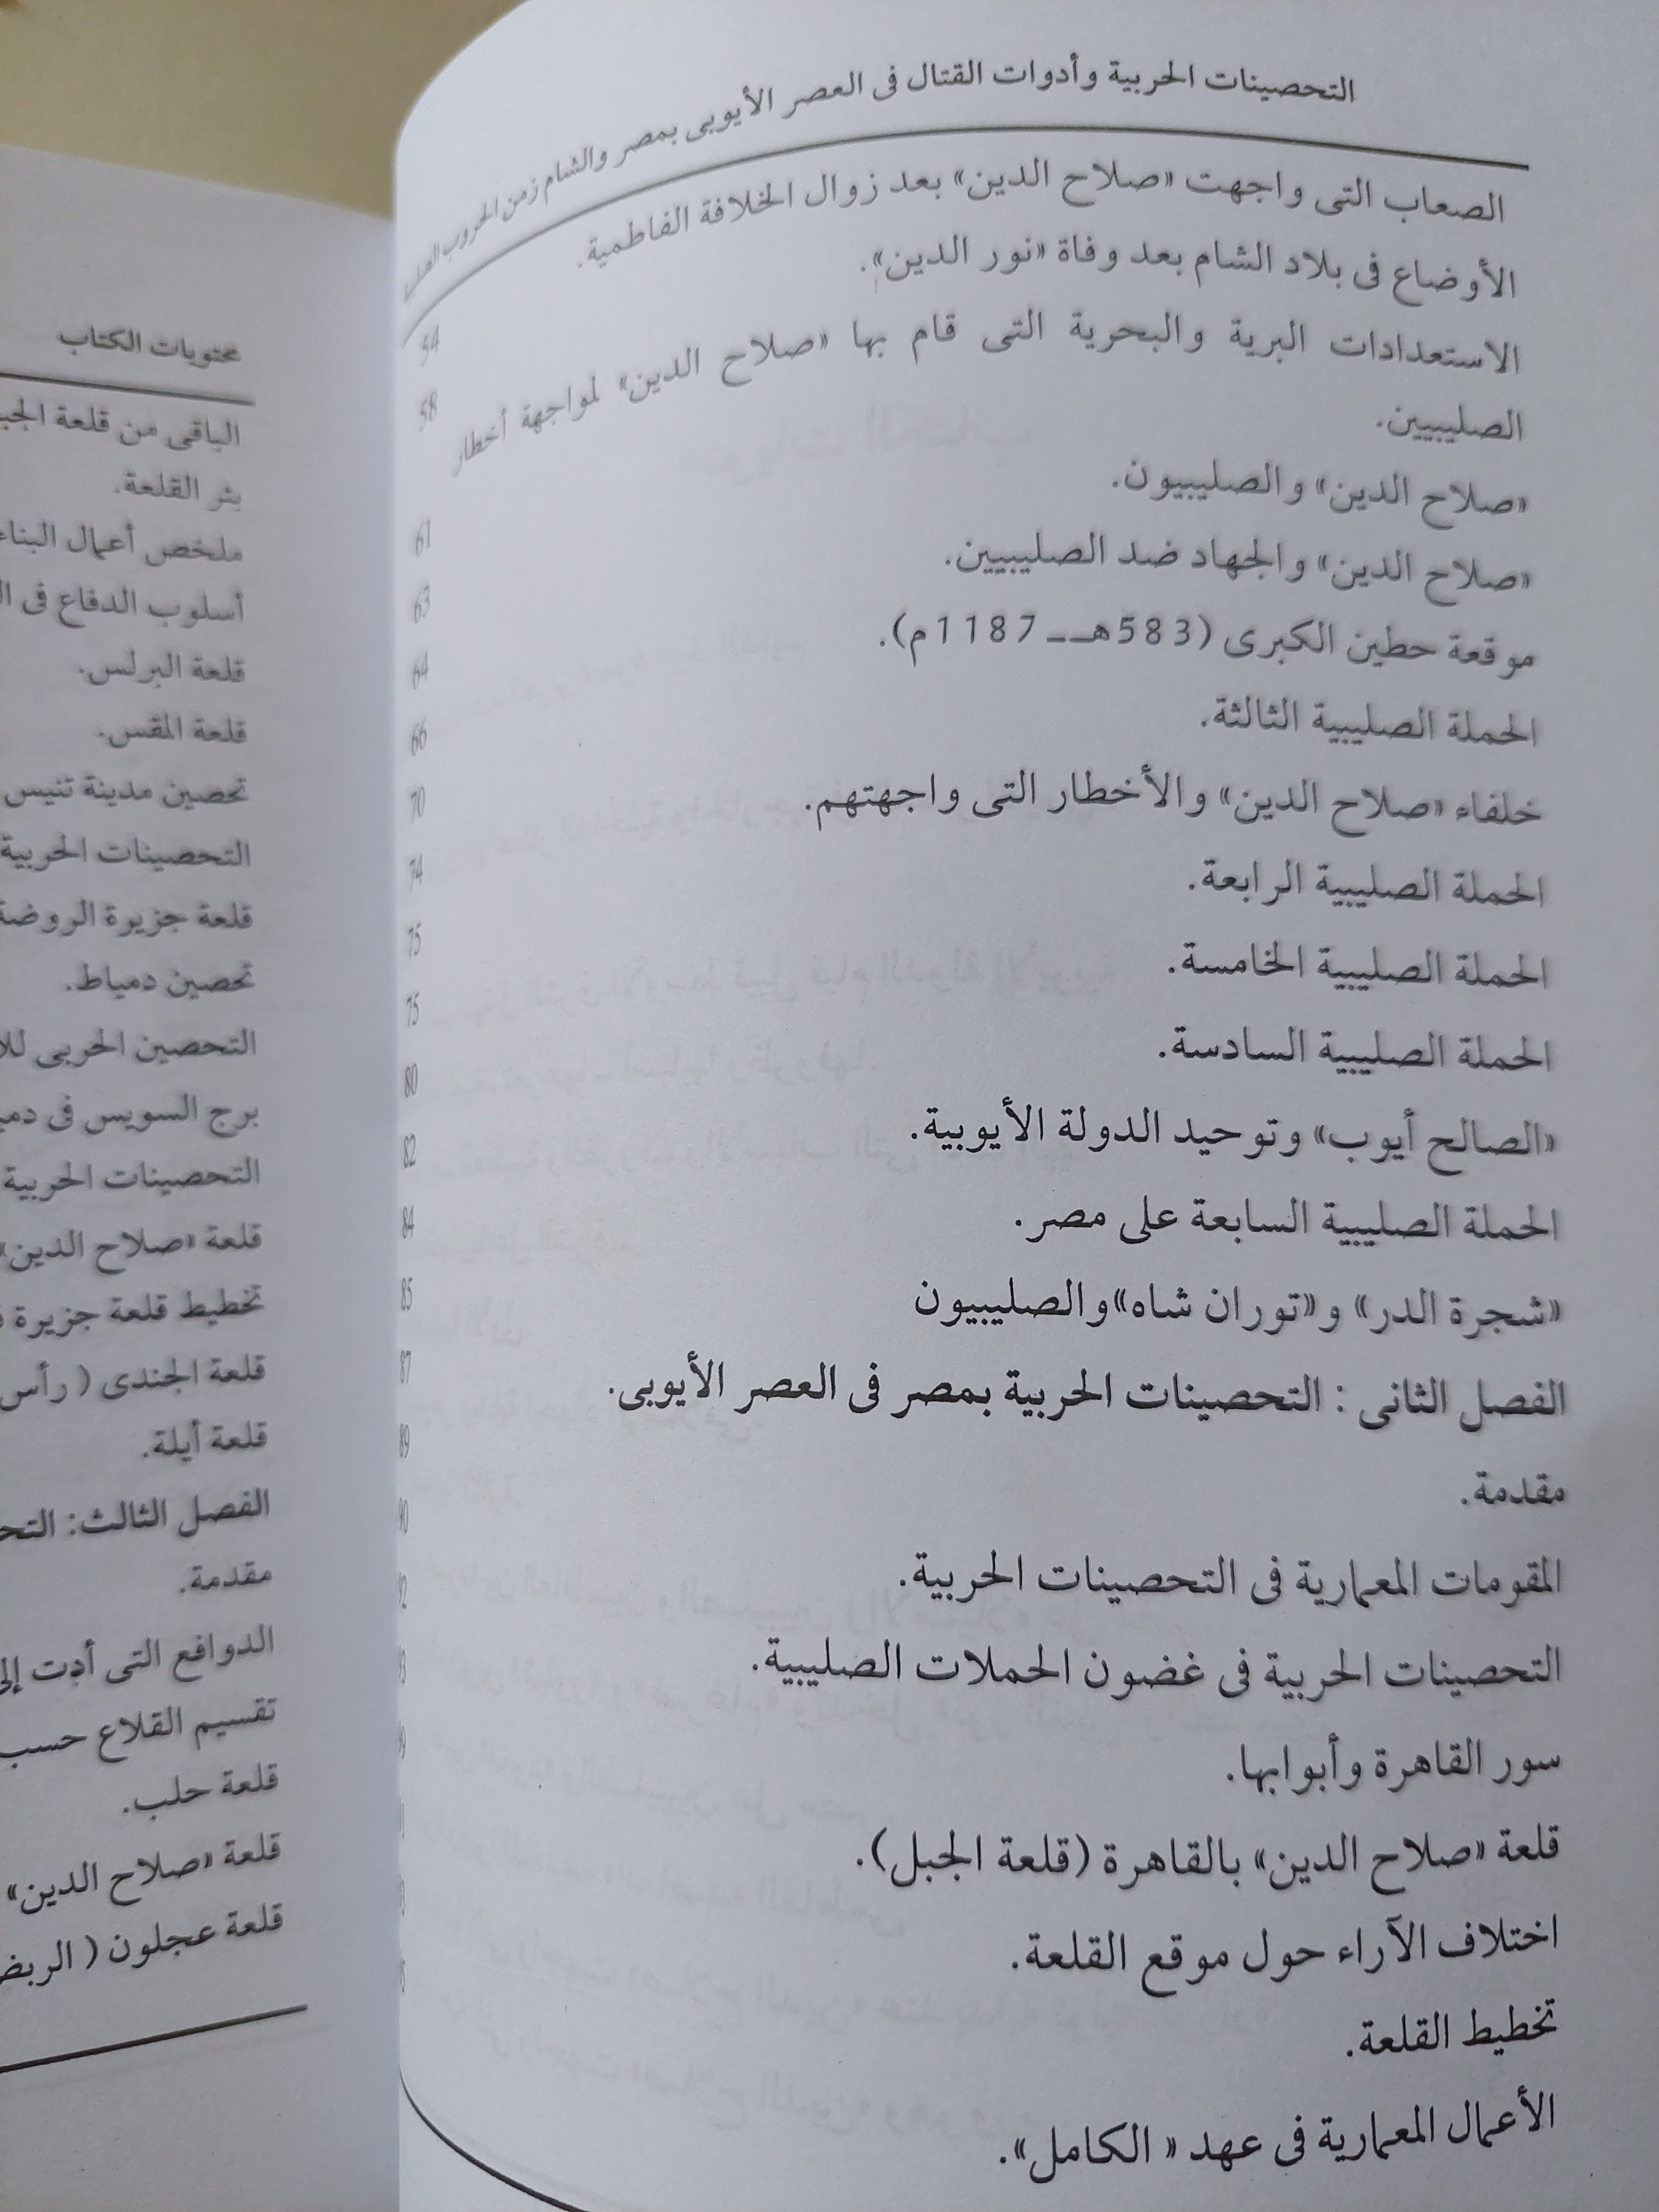 التحصينات الحربية وأدوات القتال فى العصر الأيوبى بمصر والشام زمن الحروب الصليبية
الصعاب التى واجهت «صلاح الدين» بعد زوال الخلافة الفاطمية. 54
الأوضاع فى بلاد الشام بعد وفاة «نور الدين». 58
الاستعدادات البرية والبحرية التى قام بها «صلاح الدين» لمواجهة أخطار
الصليبيين. 61
«صلاح الدين» والصليبيون. 63
«صلاح الدين» والجهاد ضد الصليبيين. 64
موقعة حطين الكبرى (583هــ 1187م). 66
الحملة الصليبية الثالثة. 70
خلفاء «صلاح الدين» والأخطار التى واجهتهم. 74
الحملة الصليبية الرابعة. 75
الحملة الصليبية الخامسة. 75
الحملة الصليبية السادسة. 80
«الصالح أيوب» وتوحيد الدولة الأيوبية. 82
الحملة الصليبية السابعة على مصر. 84
«شجرة الدر» و«توران شاه»والصليبيون 85
الفصل الثانى : التحصينات الحربية بمصر فى العصر الأيوبى. 87
مقدمة. 89
المقومات المعمارية فى التحصينات الحربية.
التحصينات الحربية فى غضون الحملات الصليبية.
سور القاهرة وأبوابها.
قلعة «صلاح الدين» بالقاهرة (قلعة الجبل).
اختلاف الآراء حول موقع القلعة.
تخطيط القلعة.
الأعمال المعمارية فى عهد « الكامل».
محتويات الكتاب
الباقى من قلعة
بئر القلعة.
ملخص أعمال البناء
أسلوب الدفاع فى
قلعة البرلس.
قلعة المقس.
تحصين مدينة تنيس
التحصينات الحربية
قلعة جزيرة الروضة
تحصين دمياط.
التحصين الحربى
برج السويس فى
التحصينات الحربية
قلعة «صلاح الدين»
تخطيط قلعة جزيرة
قلعة الجندى ( رأس
قلعة أيلة.
الفصل الثالث:
مقدمة.
الدوافع التى أدت إلى
تقسيم القلاع حسب
قلعة حلب.
قلعة «صلاح الدين»
قلعة عجلون (